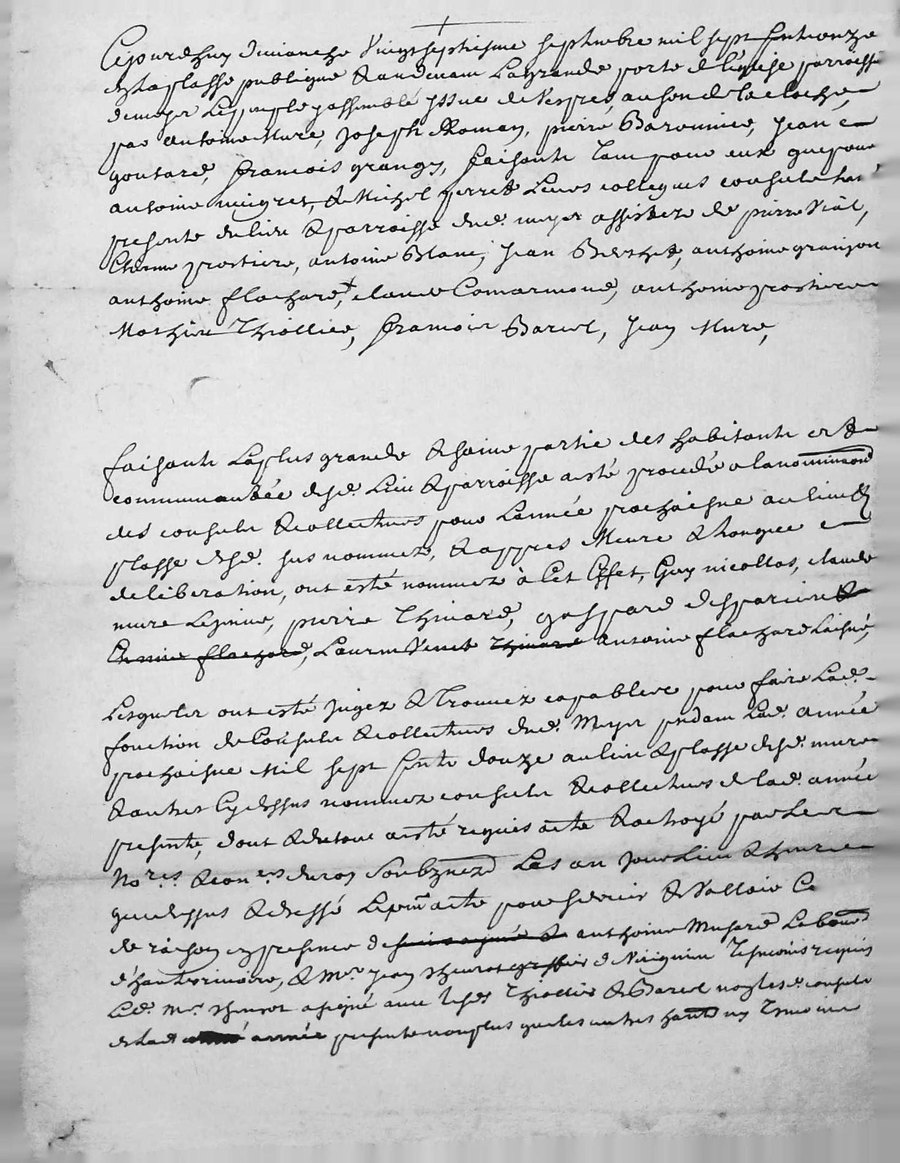 Cejourdhuy dimanche vingt septiesme septembre mil sept cents onze
en la plasse publique & au devant la grande porte de l'église parroisse
de meyer le peuple y assemblé issue de vespres, au son de la cloche,
par antoine mure, Joseph Roman, pierre Baronnier, Jean
goutard, francois grangy, faisants tant pour eux que pour
antoine meigret, & Michel perret leurs collegues consuls
presente du lieu & parroisse dud. meyer assistez de pierre Vial,
Estienne prostiere, antoine Blanc, Jean Berthet, anthoine granjon
anthoine flachard, claude Comarmond, anthoine prostiere
Mathieu Thiollier, francois Bariol, Jean Mure,
faisants la plus grande & saine partie des habitants et
communautée dud. Lieu & parroisse a esté procédé a la nomination
des consuls & collecteurs pour l'année prochaisne au lieu &
plasse desd. sus nommez, & appres Meure & longue
deliberation, ont esté nommez à Cet Effet, Guy nicollas, claude
mure Lepine, pierre Thinard, gaspard
flachard, Laurens Venet Thinard antoine flachard Laisné,
Lesquels ont esté Jugez & trouvez capables pour faire Lad.
fonction de Consuls & collecteurs dud. Meyer pendam Lad. année
prochaisne Mil sept Cents douze au lieu & plasse desd. mure
& autres Cy dessus nommez consuls & collecteurs de lad. année
presente, dont & du tout a esté requis acte & octroyé par Le
No.res & con.ers du roy soubznez Les an Jour Lieu & heure
que dessus & dressé Le pnt acte pour servir & valloir Ce
de raison en presence de anthoine Musard
d'hauterivoire, & M.re Jean Thevenot greffier de Virignieu Tesmoins requis
Led. M.re a signé avec lesd. Thiollier & Bariol consuls
de lad. année presente non plus que les autres ny Tesmoins